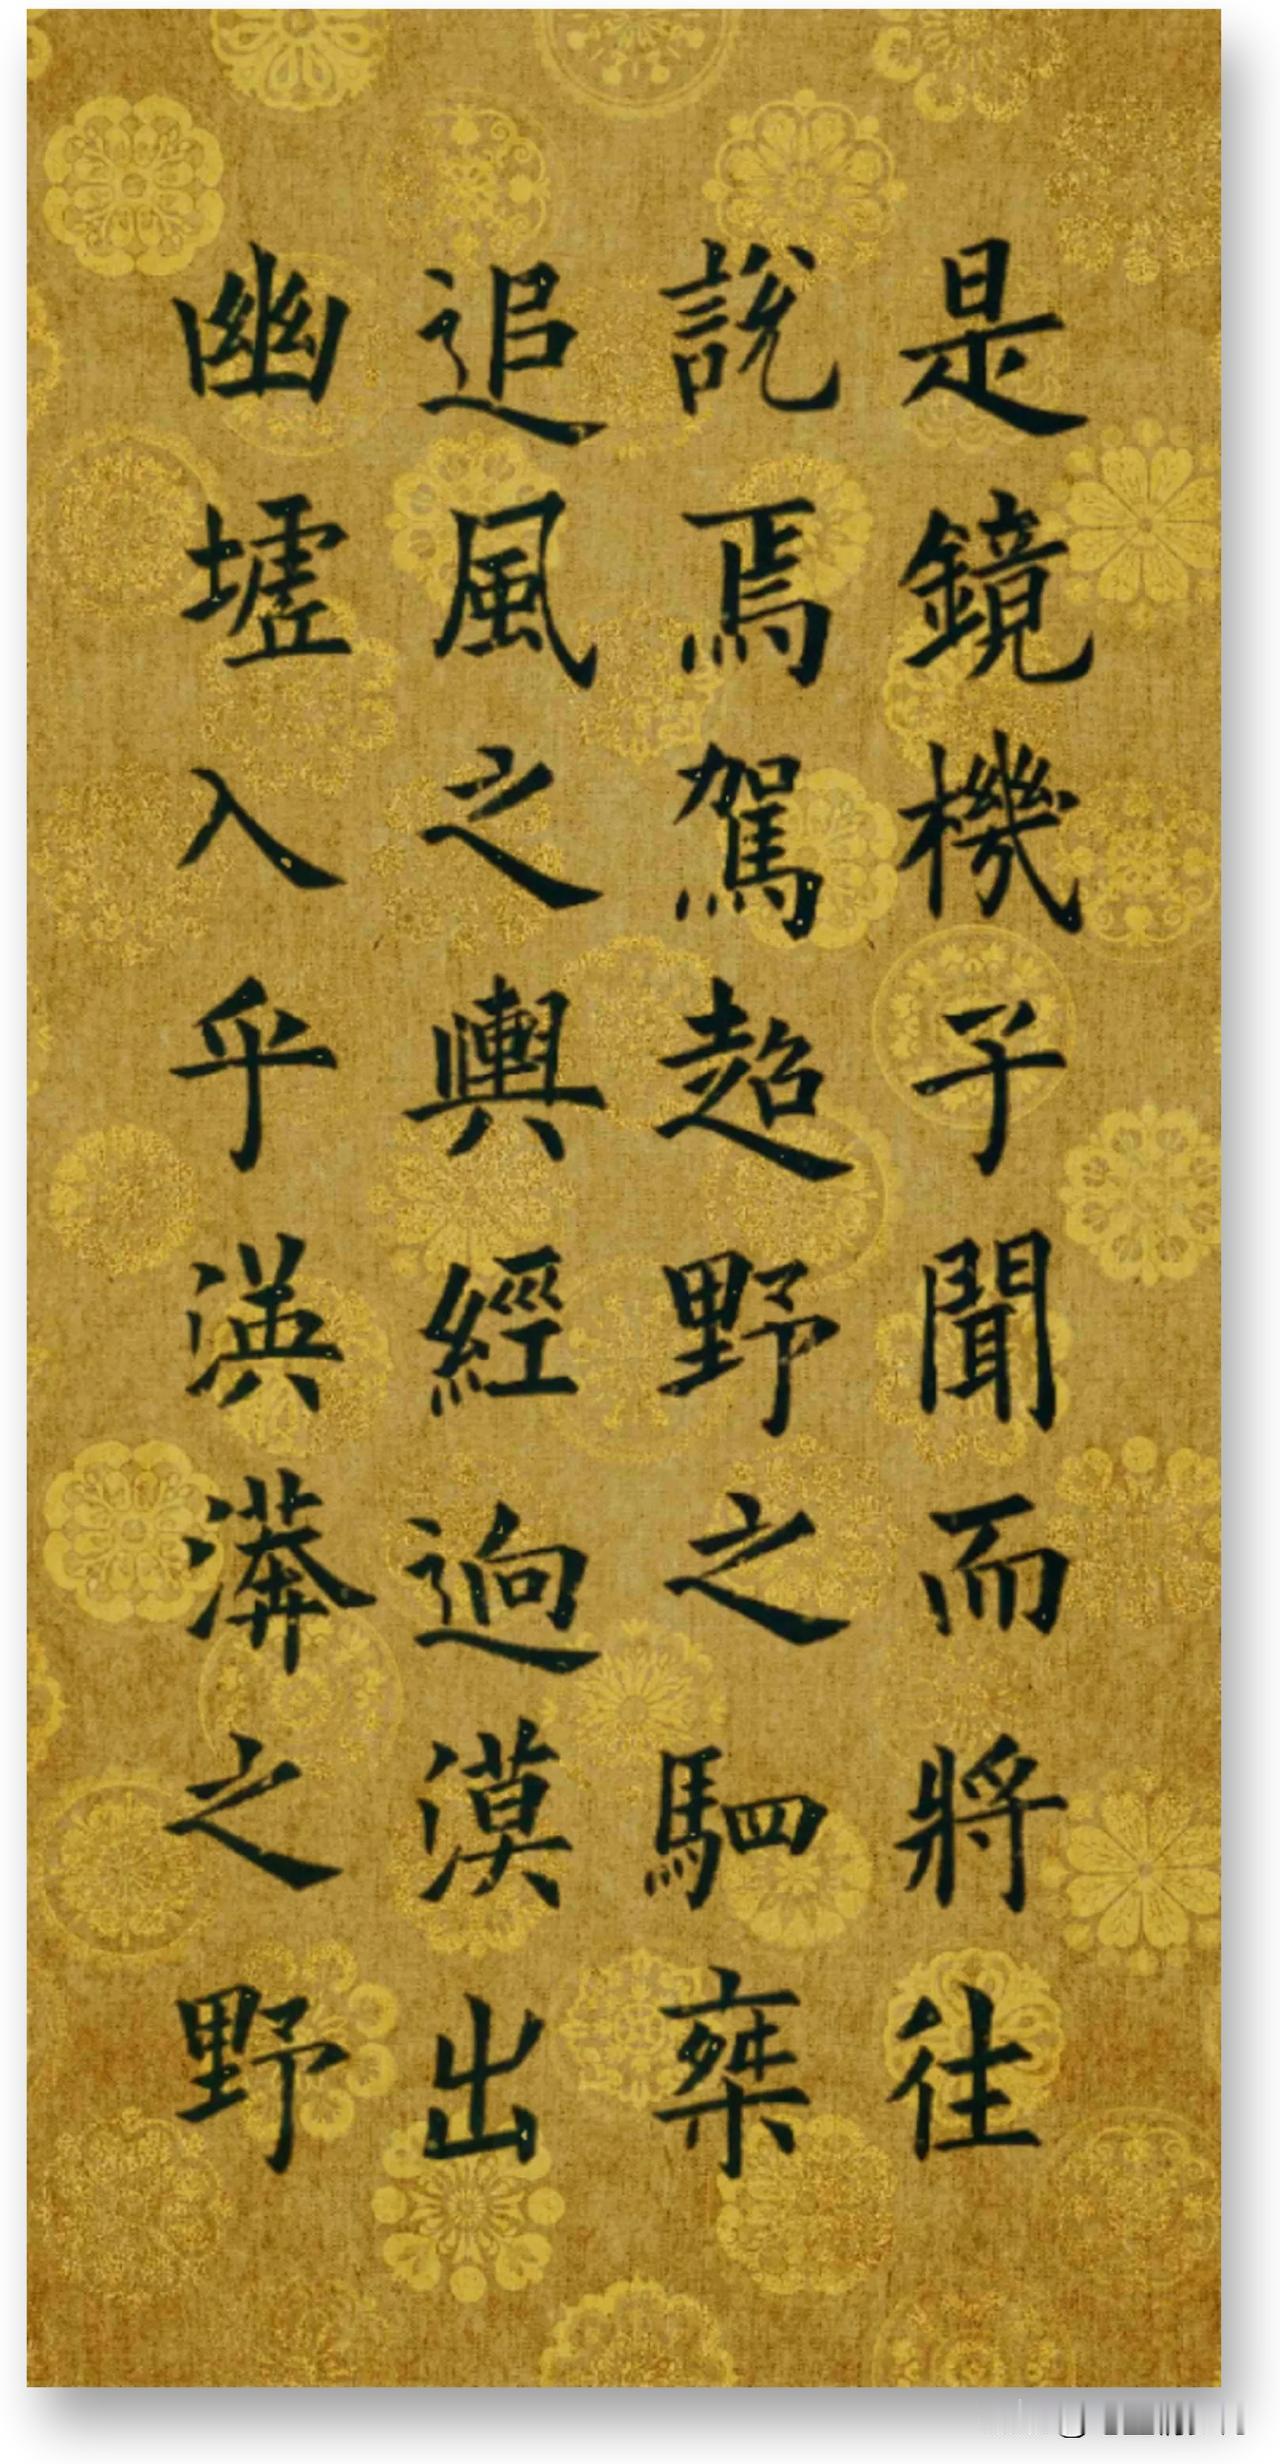 是鏡機子聞而將往
說焉駕超野之駟椉
追風之輿經迥漠出
幽墟入乎渶漭之野